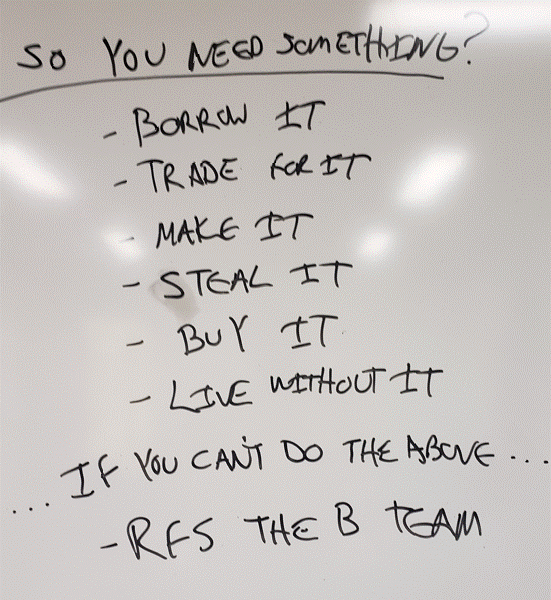 SO YOU NEED SOMETHING?
- BORROW IT
- TRADE FOR IT
- MAKE IT
- STEAL IT
- BUY IT
- LIVE WITHOUT IT
... IF YOU CAN'T DO THE ABOVE ...
- RFS THE B TEAM